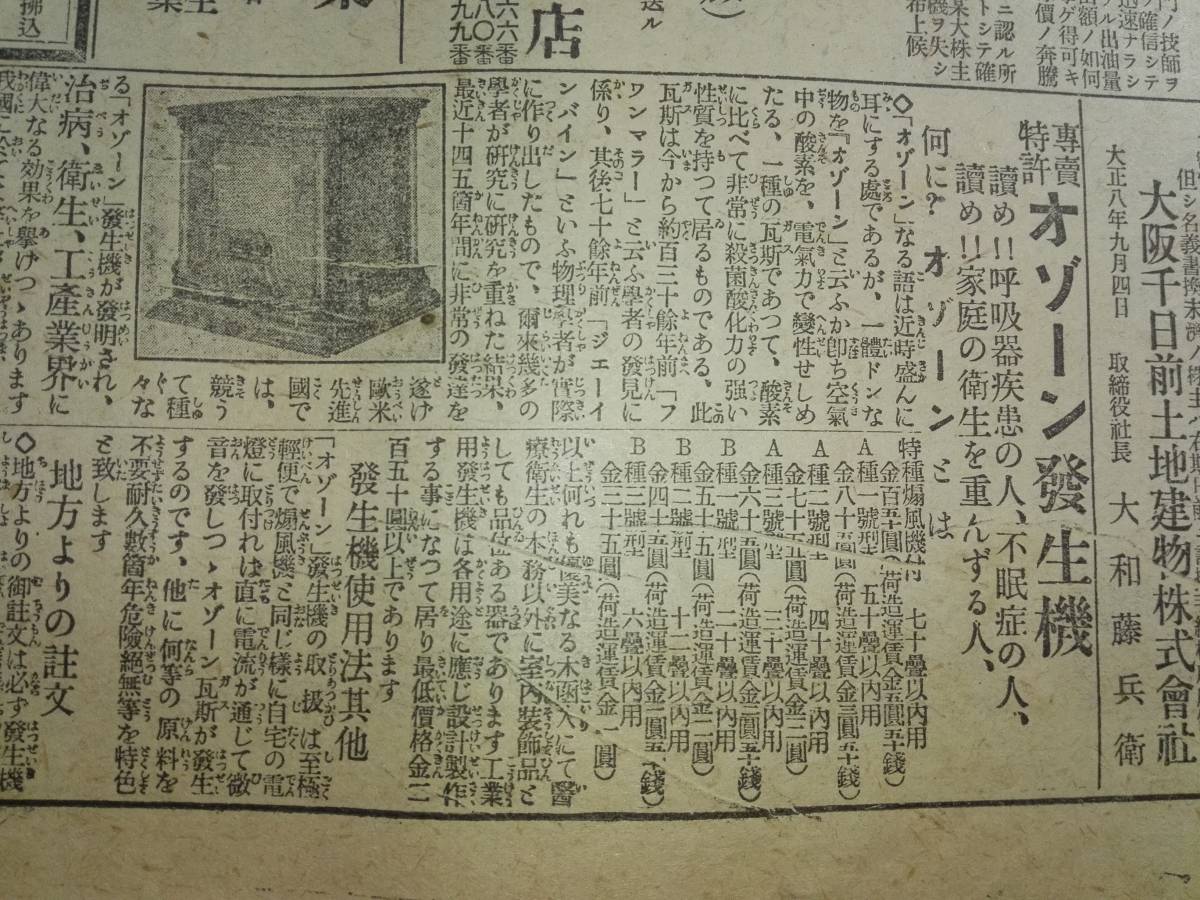 但シ名義書換
大阪千日前土地建物株式會社
大正八年九月四日　取締役社長　大和藤兵衛
專賣
特許
オゾーン發生機
讀め!!呼吸器疾患の人、不眠症の人、
讀め!!家庭の衛生を重んずる人、
何に?オゾーンとは
◇「オゾーン」なる語は近時盛んに
耳にする處であるが、一體ドンな
物を『オゾーン』と云ふか卽ち空氣
中の酸素を、電氣力で變性せしめ
たる、一種の瓦斯であつて、酸素
に比べて非常に殺菌酸化力の强い
性質を持つて居るものである、此
瓦斯は今から約百三十餘年前「フ
ワンマラー」と云ふ學者の發見に
係り、其後七十餘年前「ジェーイ
ンバイン」といふ物理學者が實際
に作り出したもので、爾來幾多の
學者が研究に研究を重ねた結果、
最近十四五箇年間に非常の發達を
遂げ
歐米
先進
國で
は、
競う
て種
々な
る「オゾーン」發生機が發明され、
治病、衛生、工產業界に
偉大なる効果を擧げつゝあります
特種煽風機付　七十疊以內用
金百五十圓(荷造運賃金五圓五十錢)
A種一號型　五十疊以內用
金八十五圓(荷造運賃金三圓五十錢)
A種二號型　四十疊以內用
金七十五圓(荷造運賃金三圓)
A種三號型　三十疊以內用
金六十五圓(荷造運賃金二圓五十錢)
B種一號型　二十疊以內用
金五十五圓(荷造運賃金二圓)
B種二號型　十二疊以內用
金四十五圓(荷造運賃金二圓五十錢)
B種三號型　六疊以內用
金三十五圓(荷造運賃金一圓)
以上何れも優美なる木函入にて醫
療衛生の本務以外に室內裝飾品と
しても品位ある器であります工業
用發生機は各用途に應じ設計製作
する事になつて居り最低價格金二
百五十圓以上であります
發生機使用法其他
「オゾーン」發生機の取扱は至極
輕便で煽風機と同じ樣に自宅の電
燈に取付れは直に電流が通じて微
音を發しつゝオゾーン瓦斯が發生
するのです、他に何等の原料を
不要耐久數箇年危險絕無等を特色
と致します
地方よりの註文
◇地方よりの御註文は必ず發生機
店